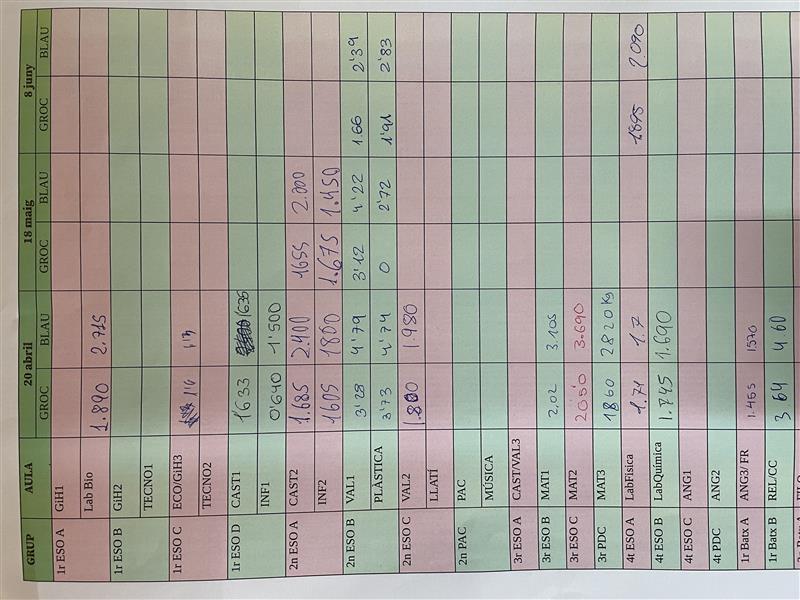 GRUP AULA 20 abril 18 maig 8 juny
GROC BLAU GROC BLAU GROC BLAU
1r ESO A GiH1
Lab Bio 1.890 2.715
1r ESO B GiH2
TECNO1
1r ESO C ECO/GiH3 1'4
TECNO2
1r ESO D CAST1 1'633 1635
INF1 0'640 1'500
2n ESO A CAST2 1.685 2.400 1655 2.200
INF2 1605 1800 1.675 1.450
2n ESO B VAL1 3'28 4'79 3'12 4'22 1.66 2'39
PLÀSTICA 3'73 4'74 0 2'72 1'91 2'83
2n ESO C VAL2 1.980
LLATÍ
2n PAC PAC
MÚSICA
3r ESO A CAST/VAL3
3r ESO B MAT1 2.02 3.105
3r ESO C MAT2 3.690
3r PDC MAT3 1860 2820 Kg
4t ESO A LabFísica 1.71 1.7 1895 2.090
4t ESO B LabQuímica 1.745 1.690
4t ESO C ANG1
4t PDC ANG2
1r Batx A ANG3/ FR 1.465 1570
1r Batx B REL/CC 3 64 4 60